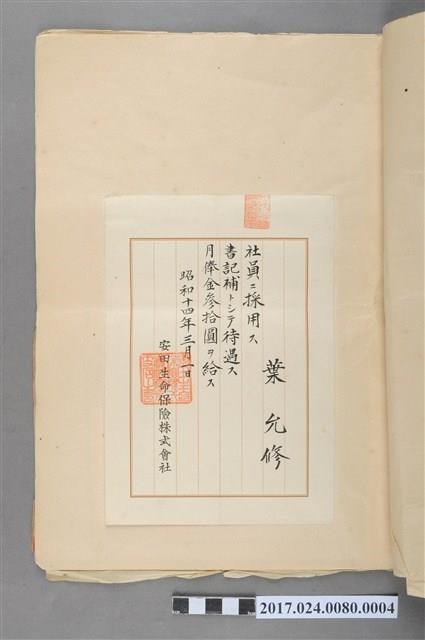 葉允修
社員ニ採用ス
書記補トシテ待遇ス
月俸金參拾圓ヲ給ス
昭和十四年三月一日
安田生命保險株式會社
2017.024.0080.0004